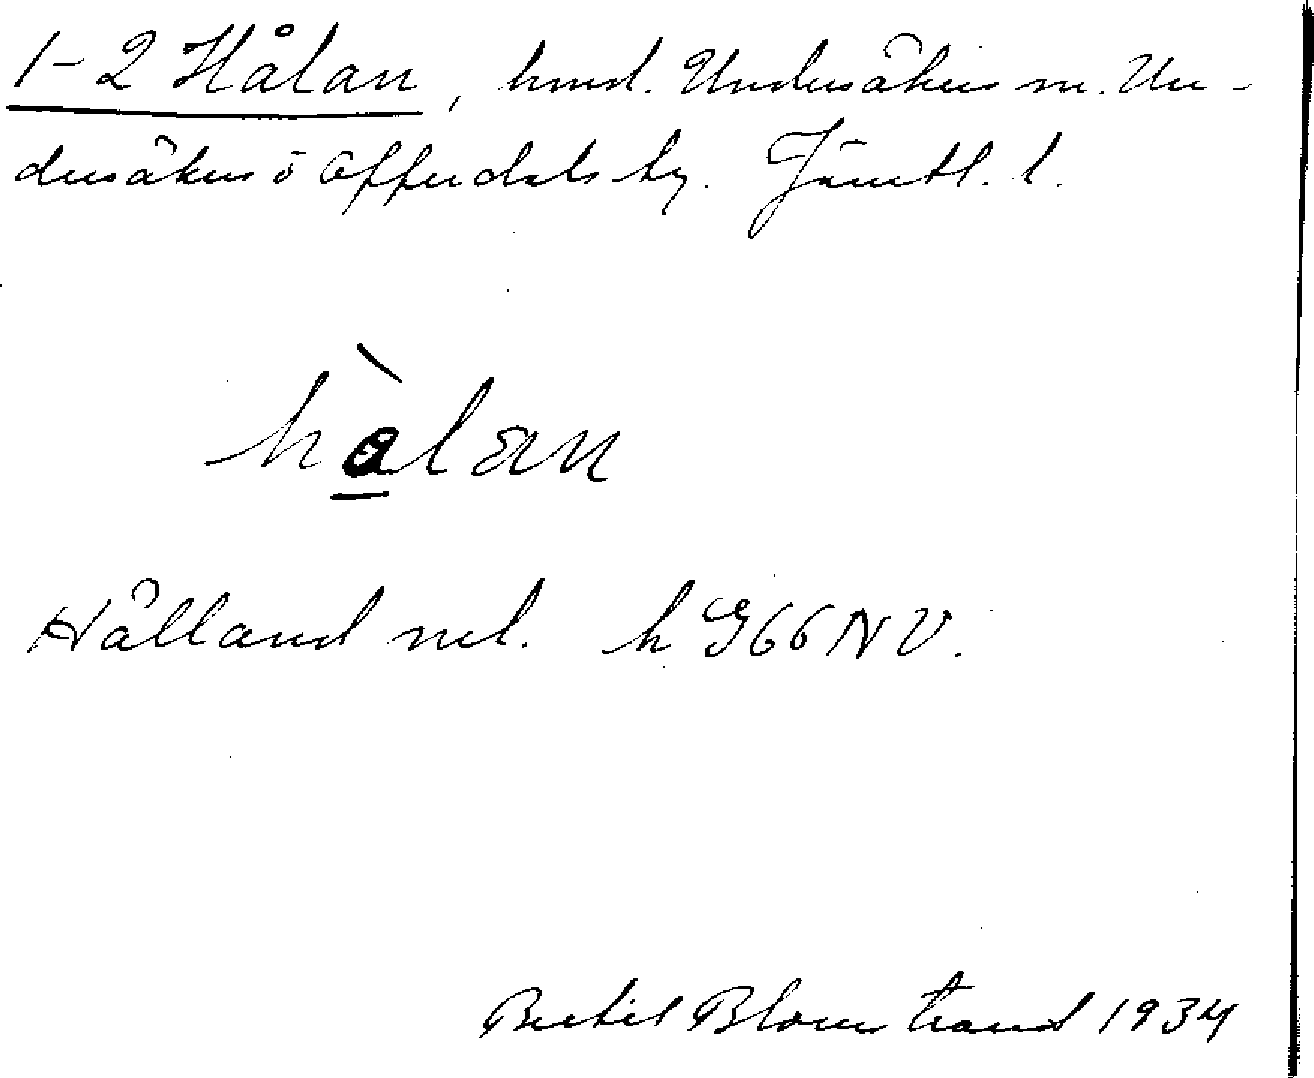 1-2 Hålan, hmd. Undersåkers sn. Un-
dersåkers o Offerdals tg. Jämtl. l.
hàlan
Hålland nel. h G66NV.
Bertil Blomstrand 1934